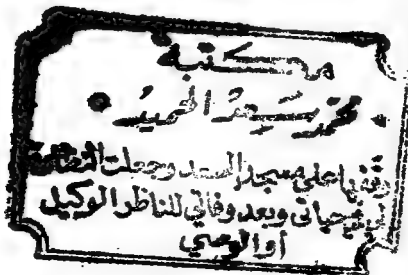 مكتبة
محمد سعيد الحميد
وقفها على مسجد السعد وجعلت النظارة
لي في حياتي وبعد وفاتي للناظر الوكيل
أو الوصي